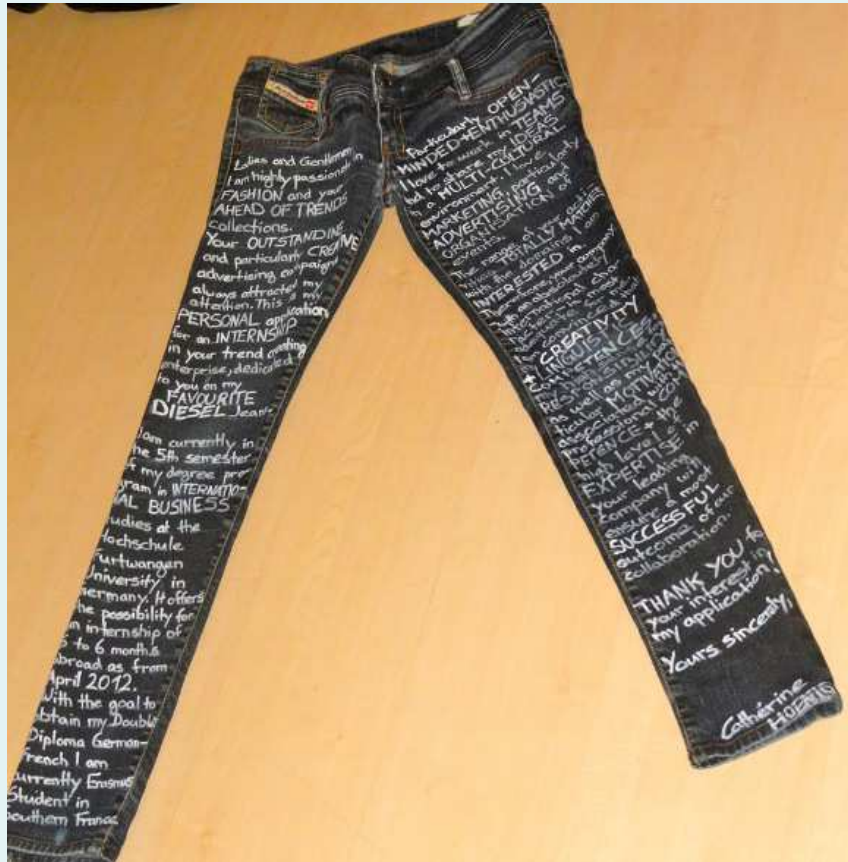 Ladies and Gentlemen
I am highly passionate in
FASHION and your
AHEAD OF TRENDS
collections.
Your OUTSTANDING
and particularly CREATIVE
advertising campaigns
always attracted my
attention. This is my
PERSONAL application
for an INTERNSHIP
in your trend creating
enterprise, dedicated
to you on my
FAVOURITE
DIESEL Jeans.
I am currently in
the 5th semester
of my degree pro
gram in INTERNATIO-
NAL BUSINESS
studies at the
Hochschule
Furtwangen
University in
Germany. It offers
the possibility for
an internship of
to 6 months
abroad as from
April 2012.
With the goal to
obtain my Double
Diploma German-
French I am
currently Erasmus
Student in
Southern France
Particularly OPEN-
MINDED + ENTHUSIASTIC
I love to work in TEAMS
to share my IDEAS
in a MULTI-CULTURAL
environment. I love
MARKETING, particularly
ADVERTISING and
ORGANISATION of
events.
The range of your activi
TOTALLY MATCHES
with the domains I am
INTERESTED in.
your company
international
CREATIVITY
LINGUISTIC
COMPETENCES
RESPONSIBILITY
as well as my par
ticular MOTIVATION
associated with
professional COM
PETENCE + the
high level of
EXPERTISE in
your leading
company with
ensure a most
SUCCESSFUL
outcome of our
collaboration.
THANK YOU for
your interest in
my application!
Yours sincerely,
Cathérine
HOENIG